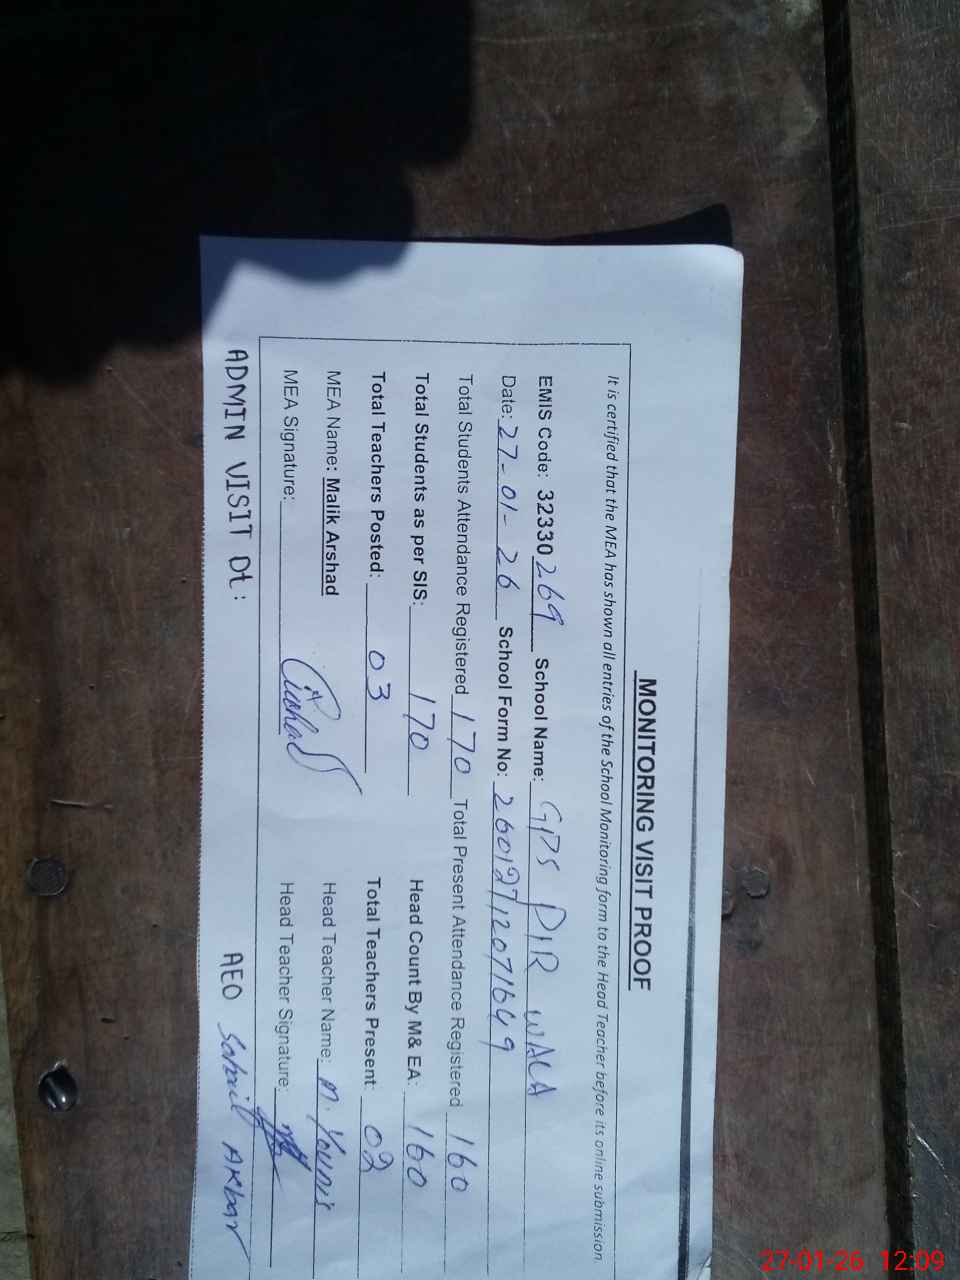 MONITORING VISIT PROOF
It is certified that the MEA has shown all entries of the School Monitoring form to the Head Teacher before its online submission
EMIS Code: 32330269 School Name: GPS PIR WALA
Date: 27-01-26 School Form No: 26012712071649
Total Students Attendance Registered 170 Total Present Attendance Registered 160
Total Students as per SIS: 170 Head Count By M& EA: 160
Total Teachers Posted: 03 Total Teachers Present: 02
MEA Name: Malik Arshad Head Teacher Name: M. Younis
MEA Signature: Arshad Head Teacher Signature:
ADMIN VISIT Dt: AEO Sohail Akbar
27-01-26 12:09